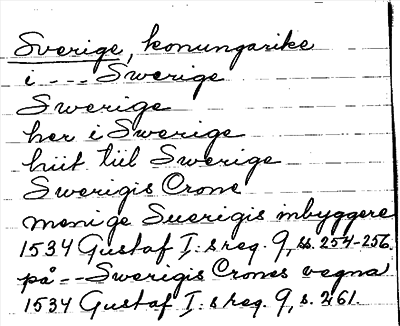 Sverige, konungarike
i - - - Swerige
Swerige
her i Swerige
hiit tiil Swerige
Swerigis Crone
menige Suerigis inbyggere
1534 Gustaf I:s reg. 9, ss. 254-256.
på - - Swerigis Crones vegna
1534 Gustaf I:s reg. 9, s. 261.